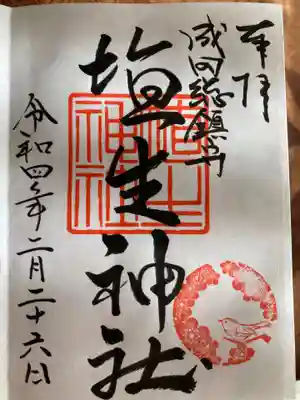 奉拝
成田総鎮守
埴生神社
埴生
神社
令和四年二月二十六日